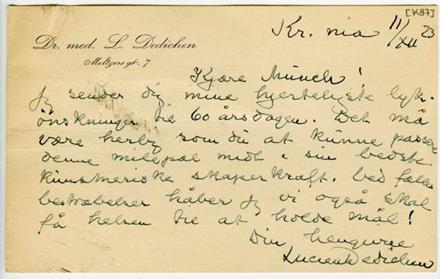 [K87]
Dr. med. L. Dedichen
Meltzersgt. 7
Kr. nia 11/XII 23
Kjære Munch!
Jeg sender dig mine hjerteligste lyk-
ønskninger til 60 årsdagen. Det må
være herlig som du at kunne passere
denne milepæl midt i sin bedste
kunstneriske skaperkraft. Ved fælles
bestræbelser håber jeg vi også skal
få helsen til at holde mål!
Din hengivne
Lucien Dedichen